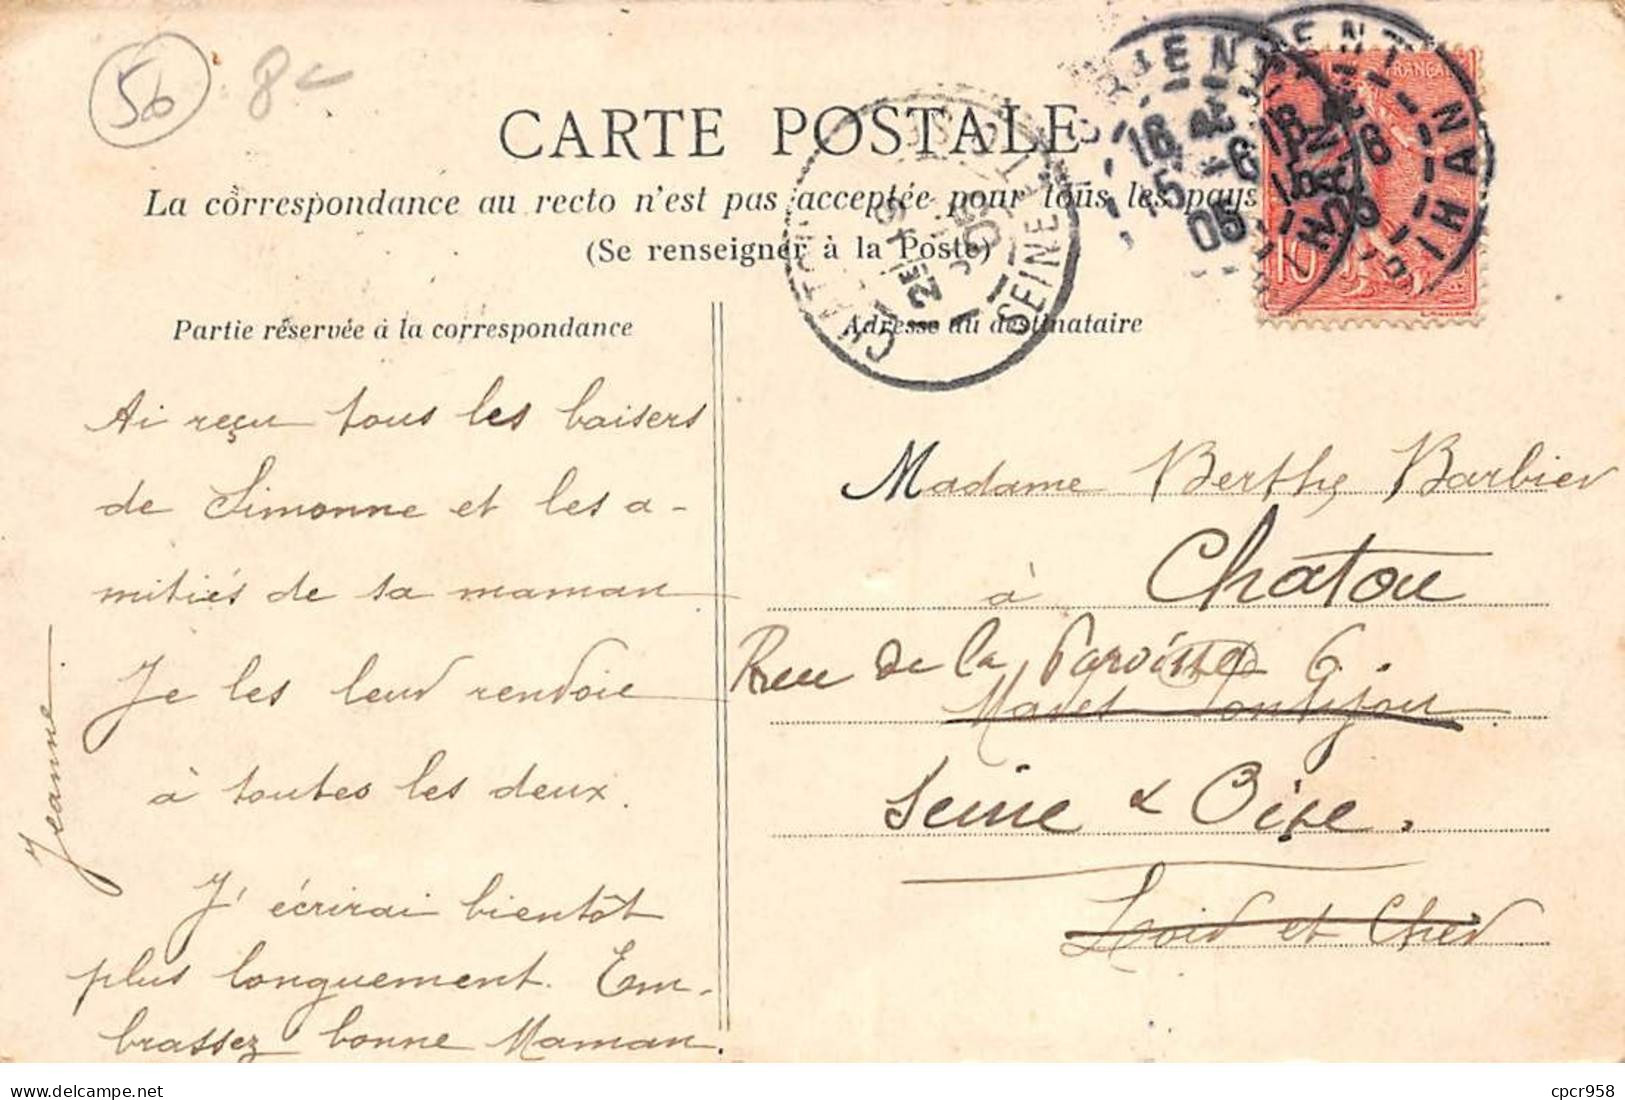 56 8
CARTE POSTALE
La correspondance au recto n'est pas acceptée pour tous les pays
(Se renseigner à la Poste)
Partie réservée à la correspondance
Ai reçu tous les baisers
de Simonne et les a-
mitiés de sa maman
Je les leur renvoie
à toutes les deux.
J'écrirai bientôt
plus longuement. Em-
brassez bonne Maman.
Jeanne
Adresse du destinataire
Madame Berthe Barbier
à Chatou
Rue de la Paroisse 6.
Seine & Oise.
Loir et Cher
CHATOU
SEINE-ET-OISE
LORIENT
MORBIHAN
05
10
cpcr958